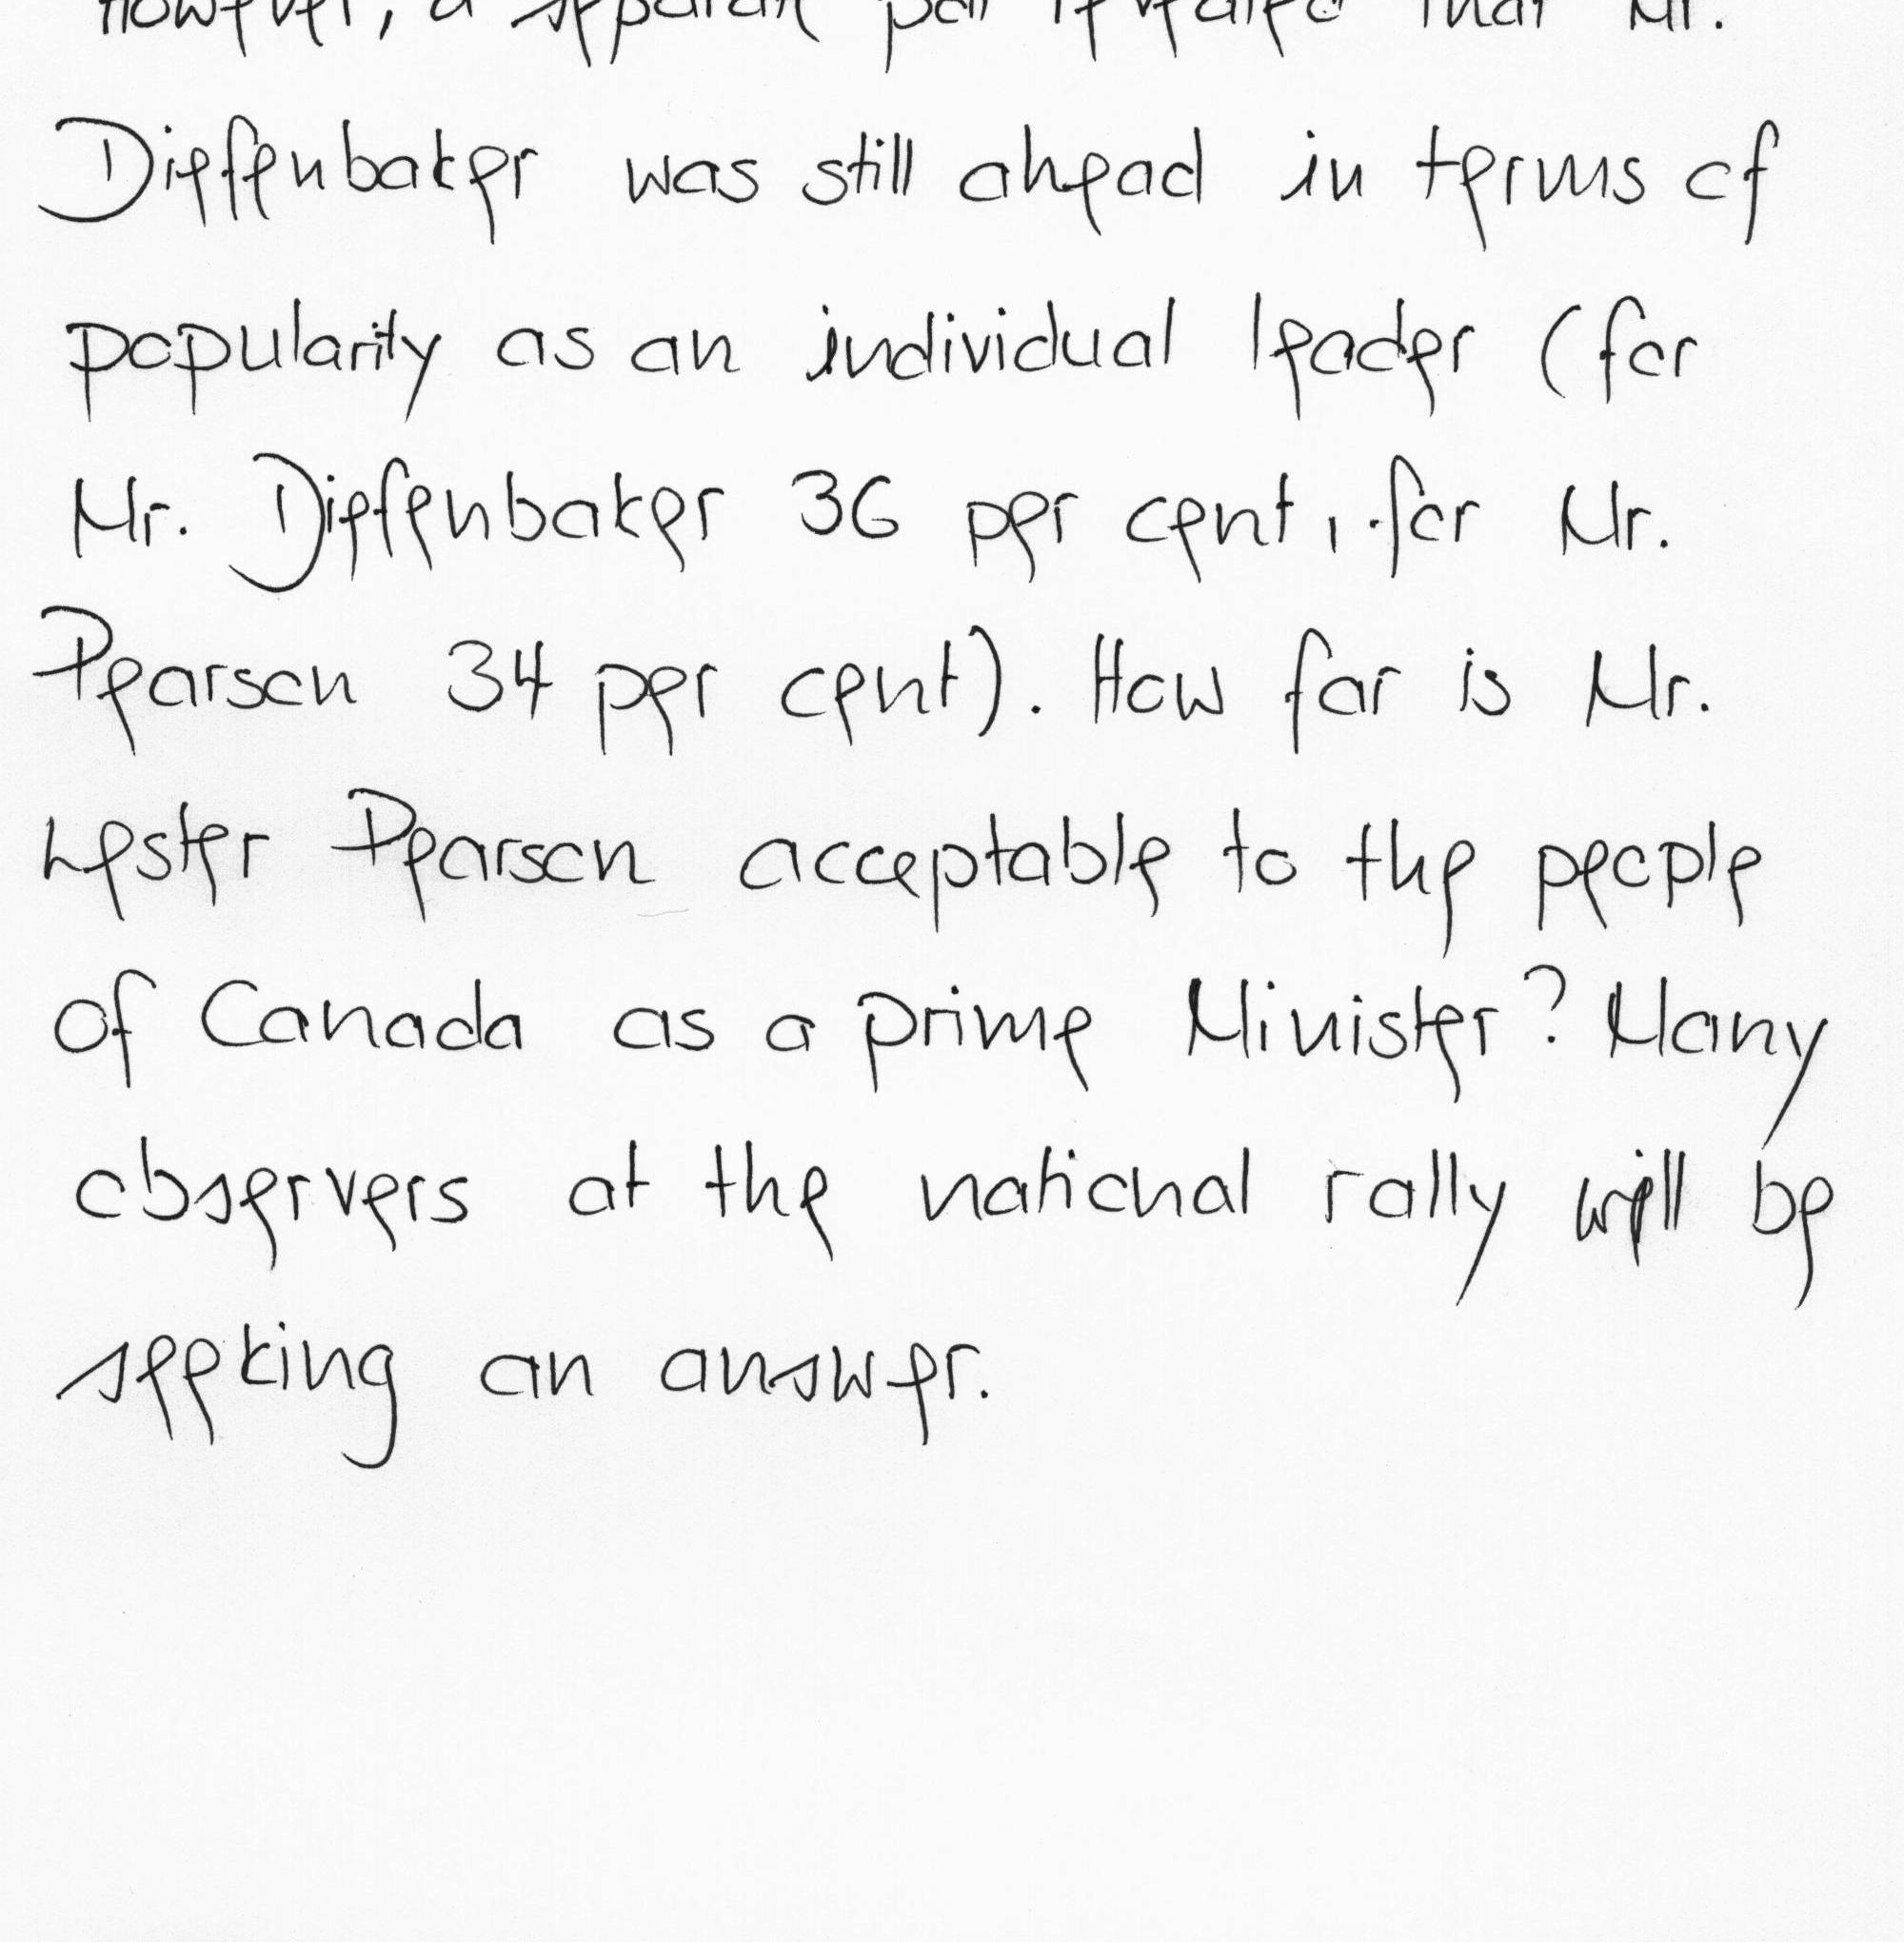 However, a separate poll revealed that Mr.
Dieffenbaker was still ahead in terms of
popularity as an individual leader (for
Mr. Diefenbaker 36 per cent, for Mr.
Pearson 34 per cent). How far is Mr.
Lester Pearson acceptable to the people
of Canada as a prime Minister? Many
observers at the national rally will be
seeking an answer.